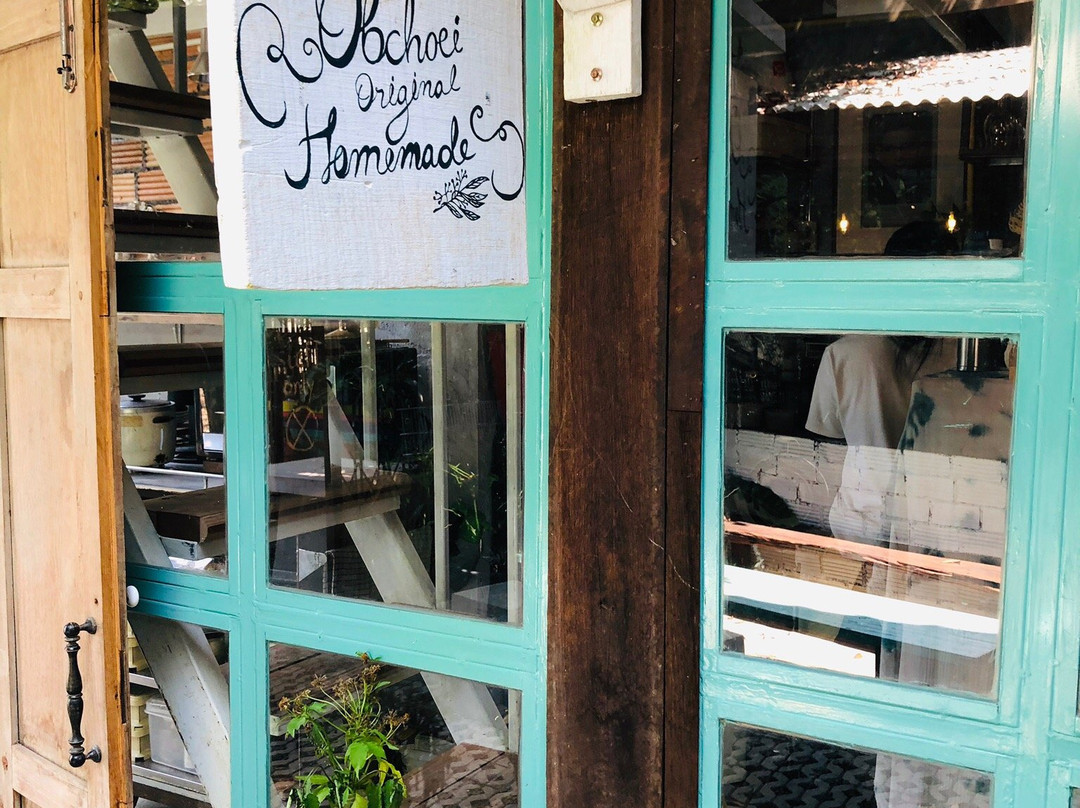 Obchoei
Original
Homemade